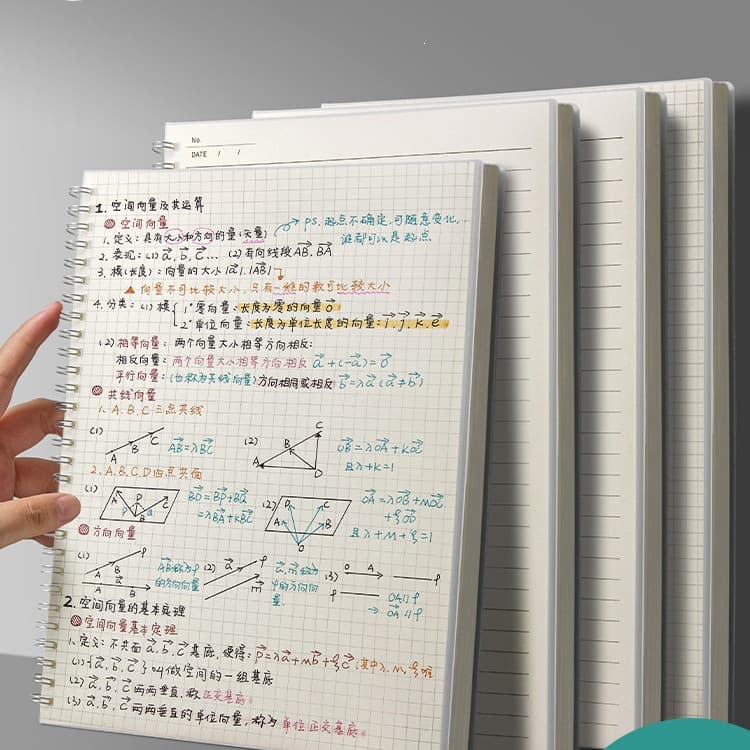 No.
DATE / /
1. 空间向量及其运算
空间向量
1. 定义：具有大小和方向的量(矢量)
PS. 起点不确定, 可随意变化,
谁都可以是起点
2. 表现：(1) a⃗, b⃗, c⃗... (2) 有向线段AB⃗, BA⃗
3. 模(长度)：向量的大小 |a⃗|. |AB⃗|
向量不可比较大小, 只有一维的数可比较大小
4. 分类：(1) 模 1° 零向量：长度为零的向量0⃗
2° 单位向量：长度为单位长度的向量：i⃗, j⃗, k⃗, e⃗
(2) 相等向量：两个向量大小相等方向相反：
相反向量：两个向量大小相等方向相反 a⃗+(-a⃗)=0⃗
平行向量：(也称为共线向量)方向相同或相反 b⃗=λa⃗ (a⃗≠b⃗)
共线向量
1. A. B. C 三点共线
(1) A B C AB⃗=λBC⃗
(2) A B C D OB⃗=λOA⃗+KOC⃗
且λ+K=1
2. A. B. C. D 四点共面
(1) A P C B BD⃗=BP⃗+BQ⃗
=λBA⃗+KBC⃗
(2) D C A B O OA⃗=λOB⃗+MOC⃗
+ξOD⃗
且λ+M+ξ=1
方向向量
(1) A B l A a⃗ B AB⃗称为l
的方向向量
(2) a⃗ l m⃗ a⃗, m⃗称为
l的方向向
量.
(3) O A l l OA∥l
→ OA⃗∥l
2. 空间向量的基本定理
空间向量基本定理
1. 定义：不共面 a⃗, b⃗, c⃗ 基底, 使得：p⃗=λa⃗+mb⃗+ξc⃗ (其中λ, M, ξ唯
(1) {a⃗, b⃗, c⃗} 叫做空间的一组基底
(2) a⃗, b⃗, c⃗ 两两垂直, 称正交基底。
(3) a⃗, b⃗, c⃗ 两两垂直的单位向量, 称为单位正交基底。